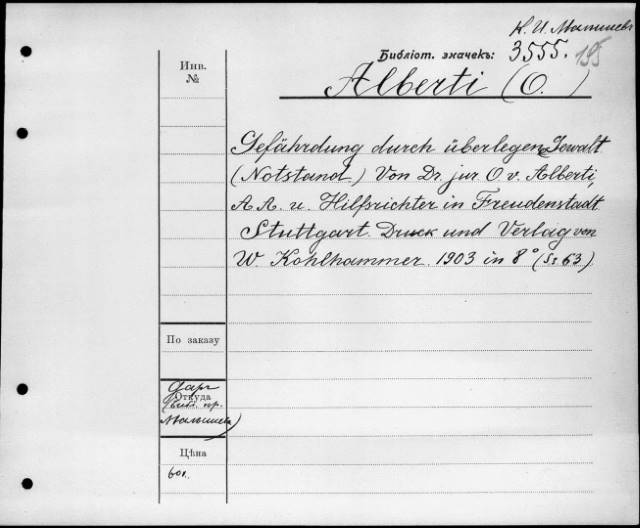 К. И. Малышев
Библіот. значекъ: 3555. 195
Инв.
№
Alberti (O.)
Gefährdung durch überlegene Gewalt
(Notstand) Von Dr. jur. O. v. Alberti,
A A. u. Hilfsrichter in Freudenstadt
Stuttgart. Druck und Verlag von
W. Kohlhammer. 1903 in 8° (Ss 63)
По заказу
Даръ
Откуда
(библ. пр.
Малышева)
Цѣна
60к.